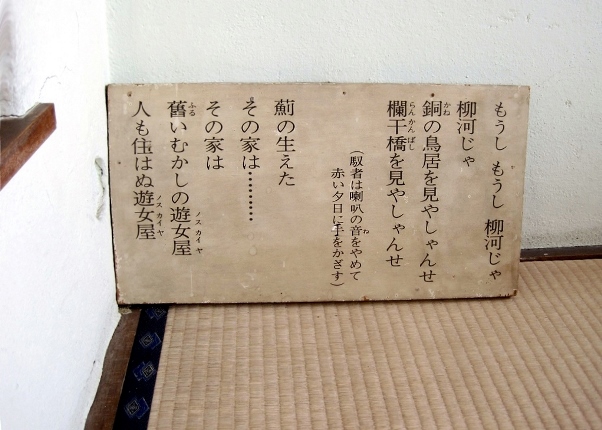 もうし もうし 柳河じゃ
柳河じゃ
銅の鳥居を見やしゃんせ
欄干橋を見やしゃんせ
（馭者は喇叭の音をやめて
赤い夕日に手をかざす）
薊の生えた
その家は‥‥‥‥‥
その家は
舊いむかしの遊女屋
人も住はぬ遊女屋